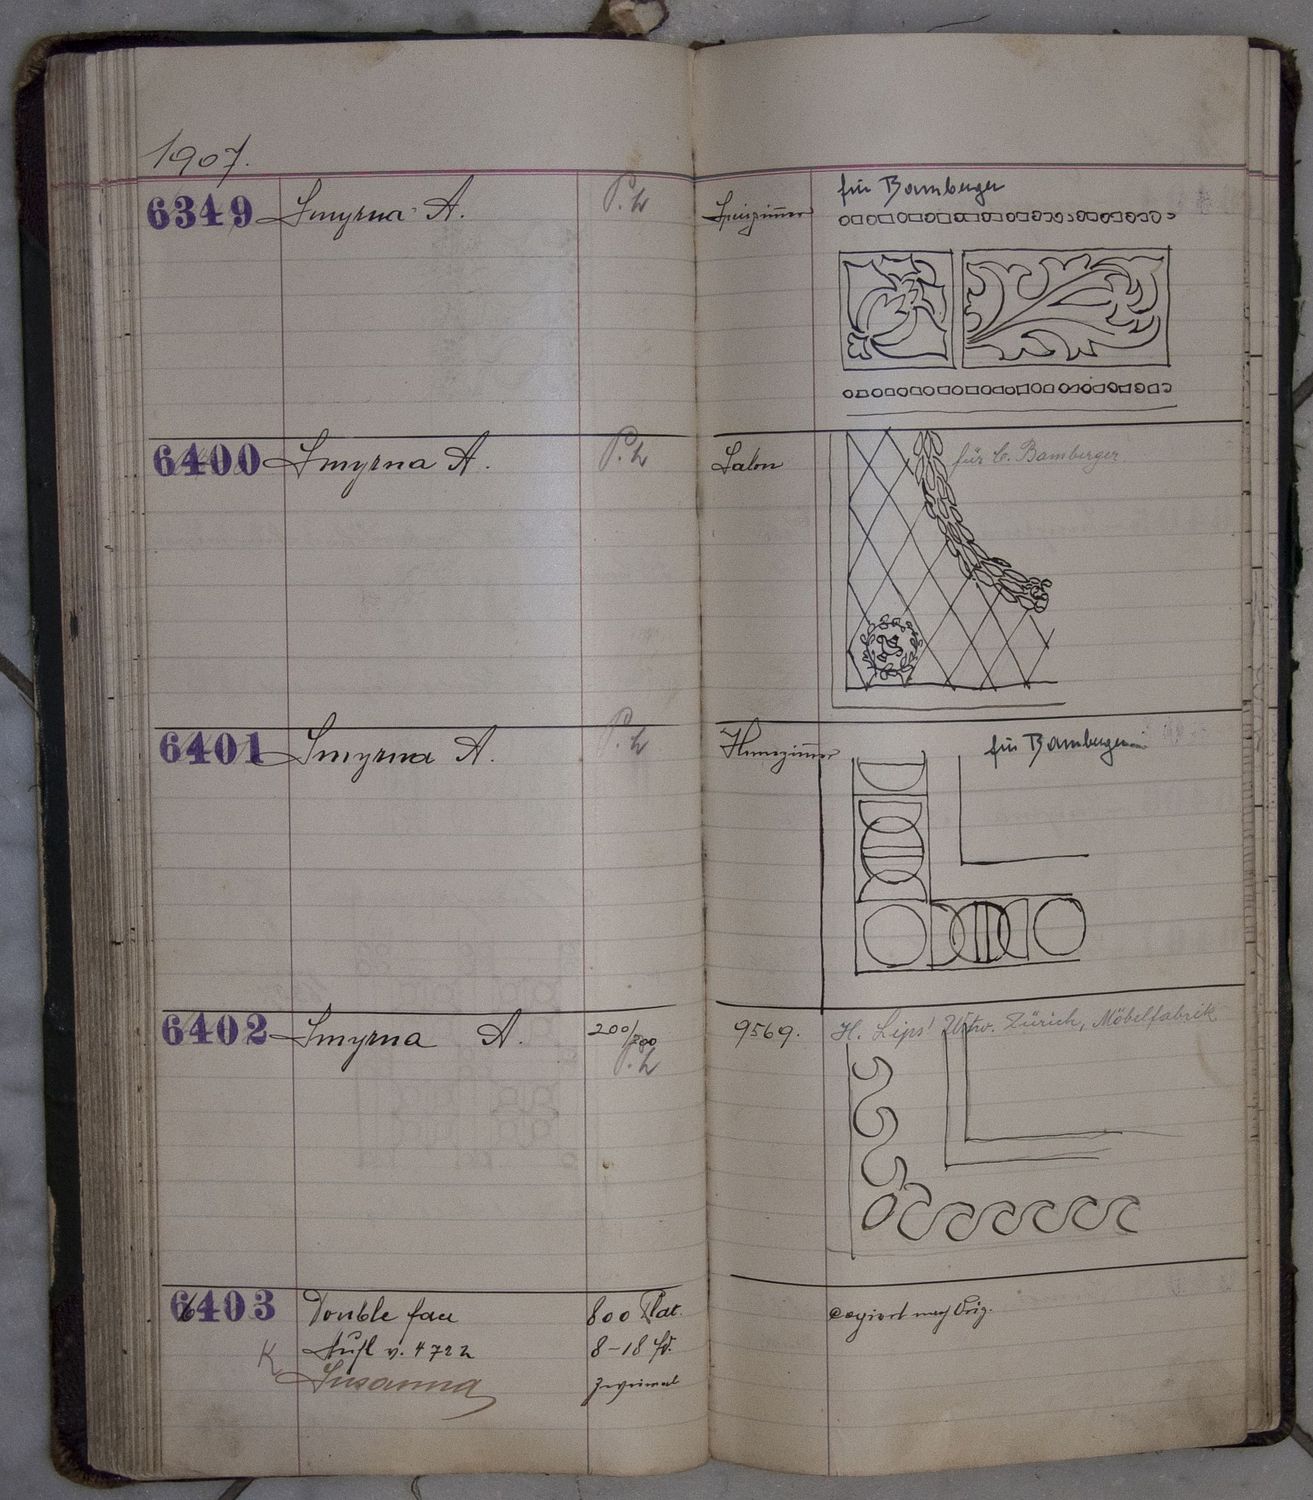 1907.
6349 Smyrna A. P. h Speisezimmer für Bamberger
6400 Smyrna A. P. h Salon für C. Bamberger
6401 Smyrna A. P. h für Bamberger
6402 Smyrna A. 200/ 9569. H. Lips' Zürich, Möbelfabrik
P. h
6403 Double face 800 Plat. copiert nach Orig.
K Aufl v. 4722 8-18 fd.
Susanna zweimal